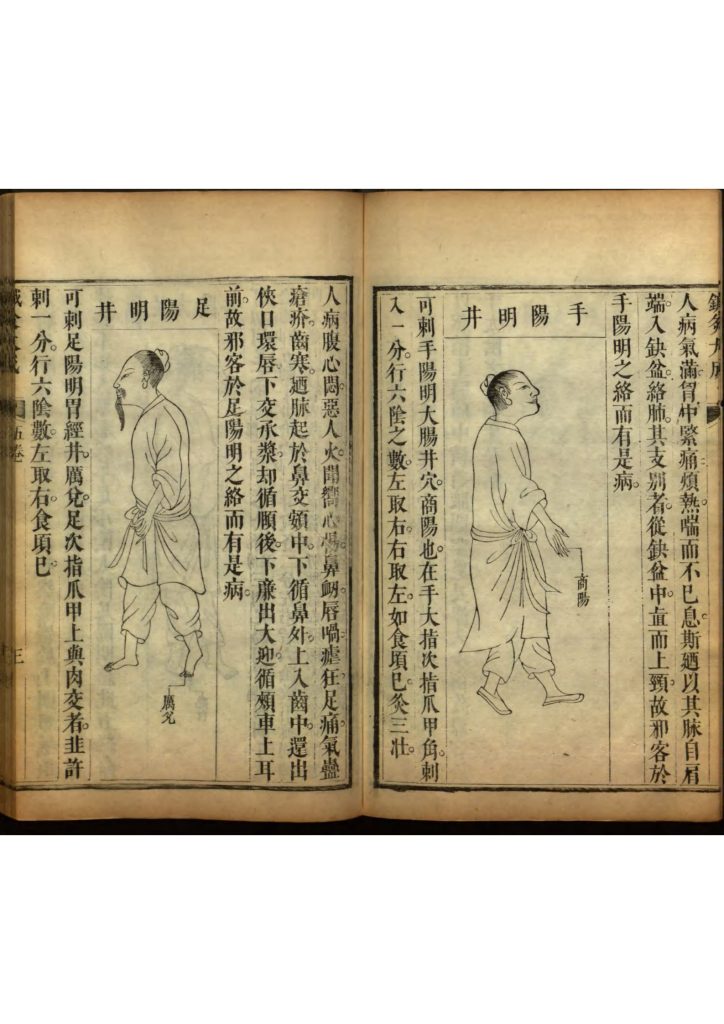 人病氣滿胷中緊痛煩熱喘而不已息斯廼以其脉自肩
端入缺盆絡肺其支别者從缺盆中直而上頸故邪客於
手陽明之絡而有是病
手陽明井
商陽
可刺手陽明大腸井穴商陽也在手大指次指爪甲角刺
入一分行六陰之數左取右右取左如食頃已灸三壯
人病腹心悶惡人火聞嚮心惕鼻衂唇喎瘧狂足痛氣蠱
瘡疥齒寒廼脉起於鼻交頞中下循鼻外上入齒中還出
俠口環唇下交承漿却循頤後下廉出大迎循頰車上耳
前故邪客於足陽明之絡而有是病
足陽明井
厲兊
可刺足陽明胃經井厲兊足次指爪甲上與肉交者韭許
刺一分行六陰數左取右食頃已
五卷